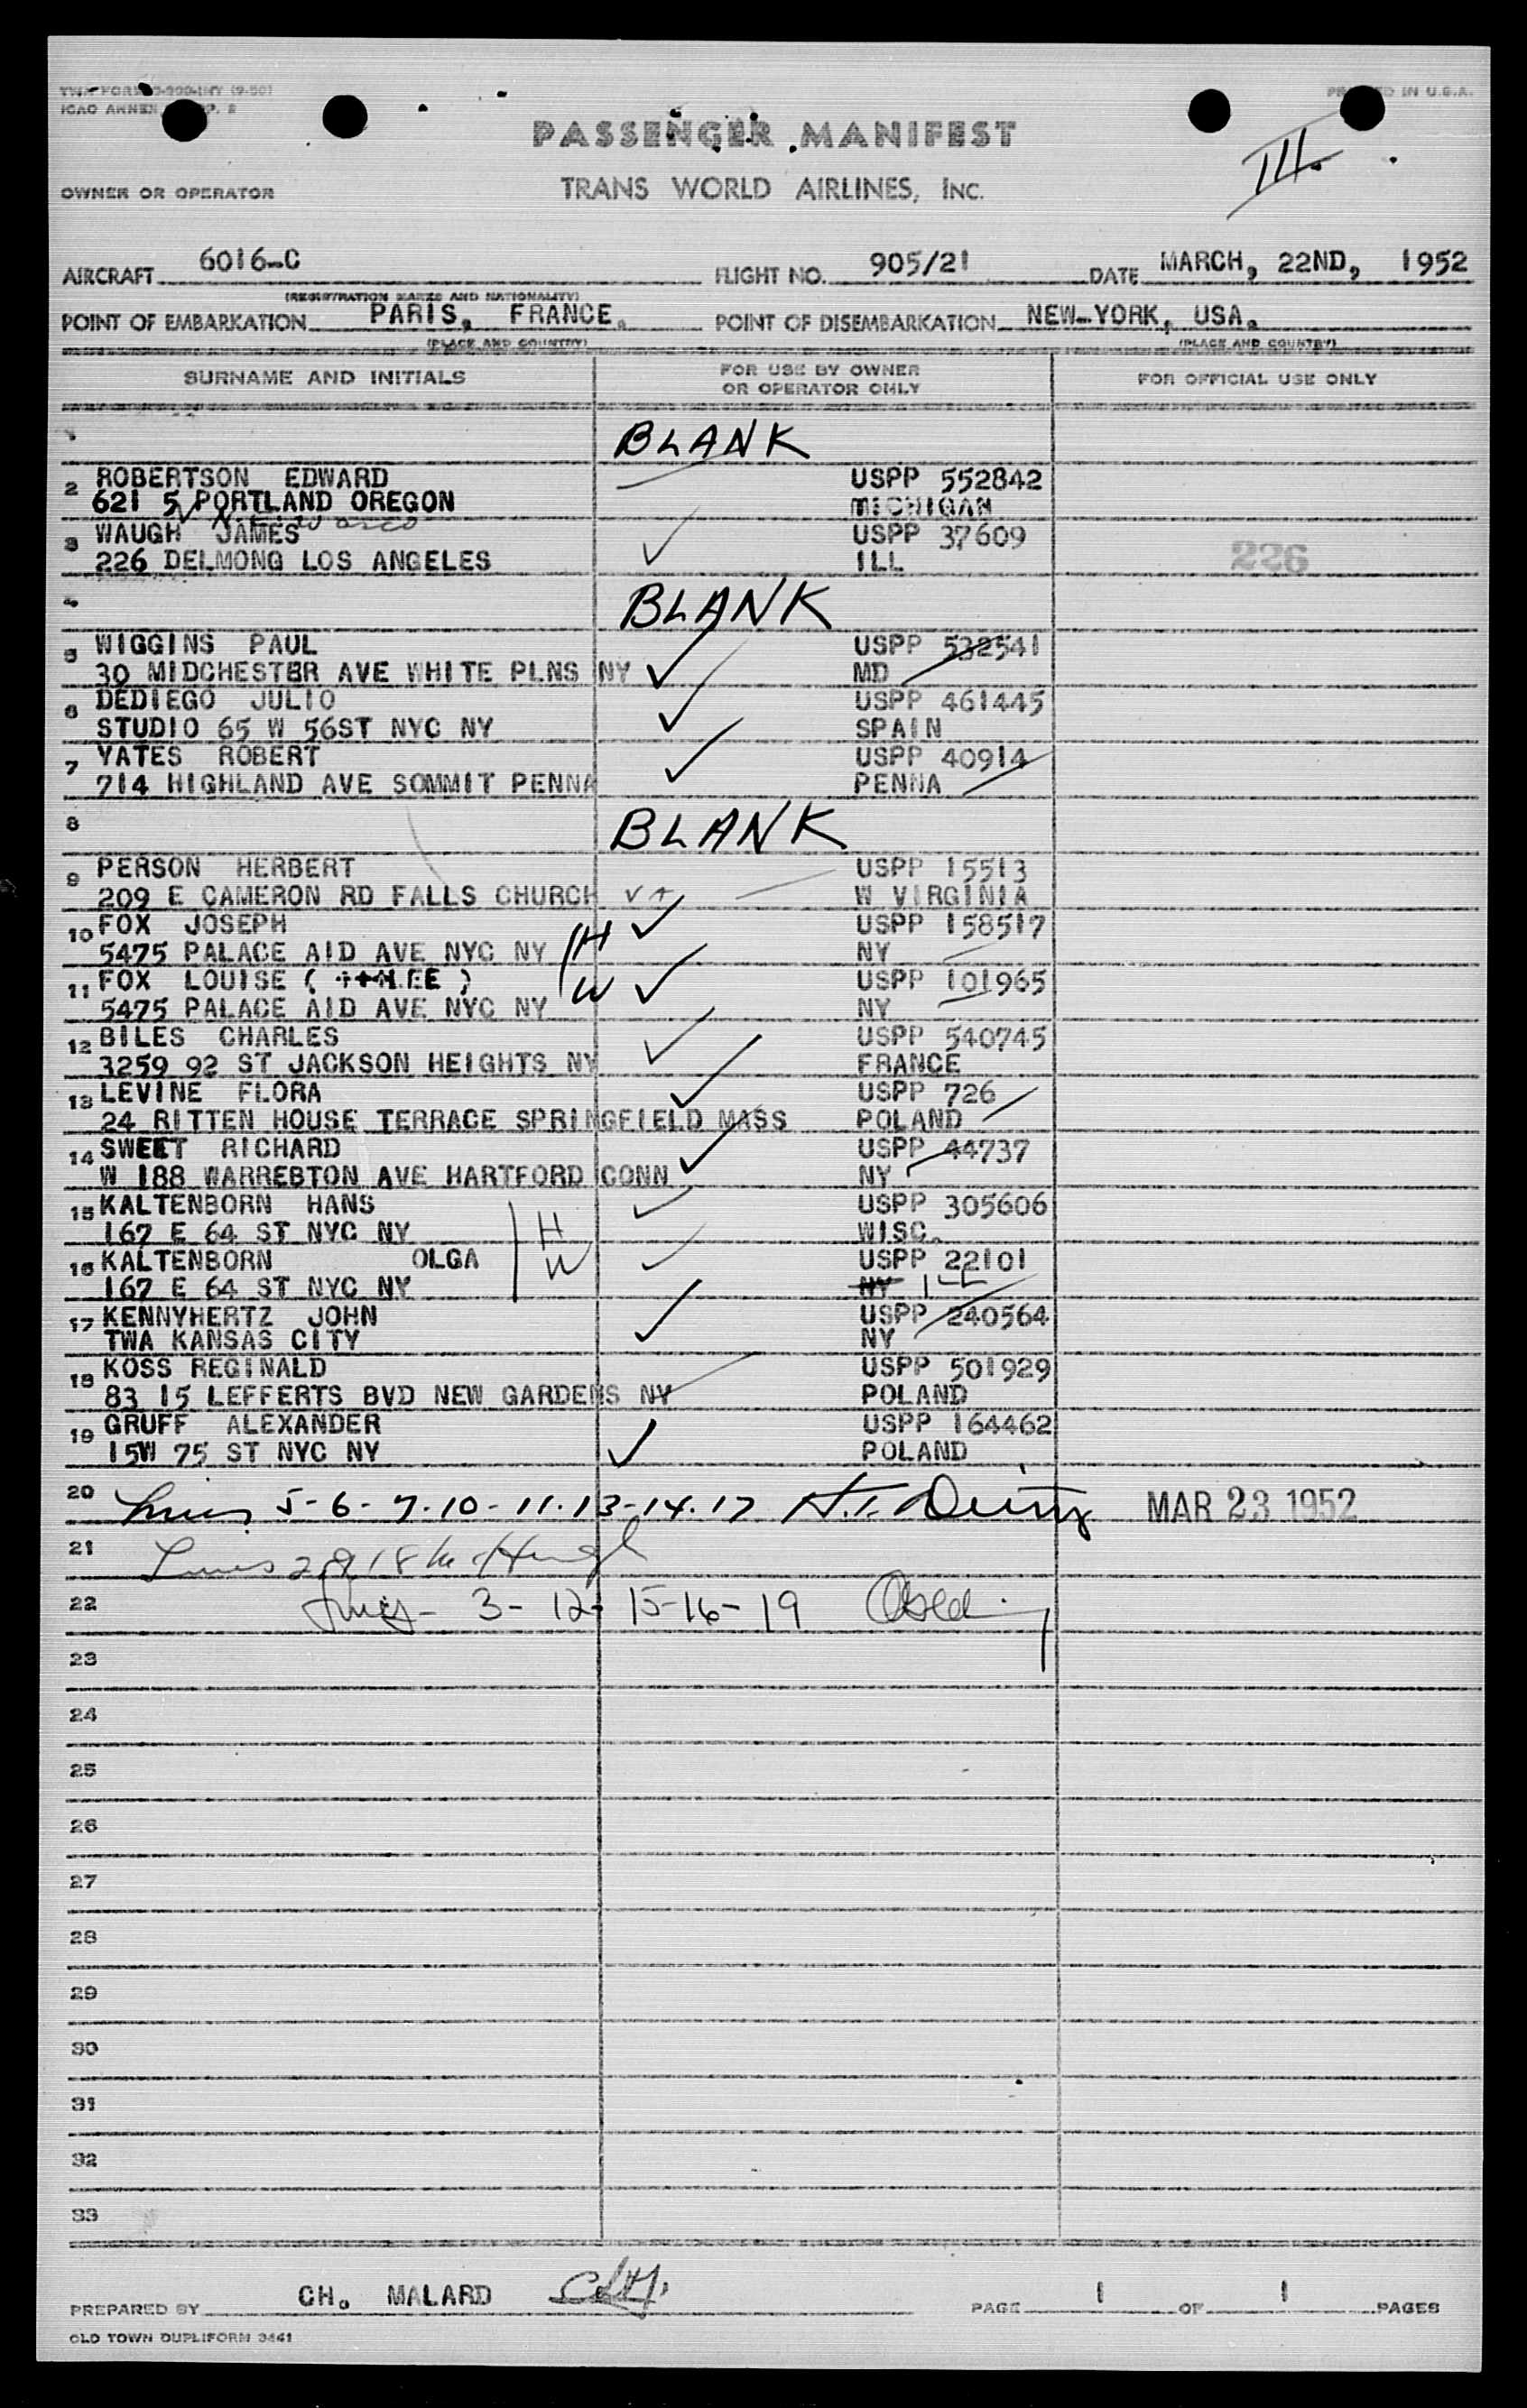 PRINTED IN U.S.A.
PASSENGER MANIFEST
III.
OWNER OR OPERATOR
TRANS WORLD AIRLINES, INC.
AIRCRAFT 6016-C FLIGHT NO. 905/21 DATE MARCH, 22ND, 1952
(REGISTRATION MARKS AND NATIONALITY)
POINT OF EMBARKATION PARIS, FRANCE. POINT OF DISEMBARKATION NEW-YORK, USA.
(PLACE AND COUNTRY) (PLACE AND COUNTRY)
SURNAME AND INITIALS FOR USE BY OWNER OR OPERATOR ONLY FOR OFFICIAL USE ONLY
1 BLANK
2 ROBERTSON EDWARD USPP 552842
621 5 PORTLAND OREGON MICHIGAN
3 WAUGH JAMES USPP 37609
226 DELMONG LOS ANGELES ILL 226
4 BLANK
5 WIGGINS PAUL USPP 532541
30 MIDCHESTER AVE WHITE PLNS NY MD
6 DEDIEGO JULIO USPP 461445
STUDIO 65 W 56ST NYC NY SPAIN
7 YATES ROBERT USPP 40914
714 HIGHLAND AVE SOMMIT PENNA PENNA
8 BLANK
9 PERSON HERBERT USPP 15513
209 E CAMERON RD FALLS CHURCH VA W VIRGINIA
10 FOX JOSEPH USPP 158517
5475 PALACE AID AVE NYC NY H NY
11 FOX LOUISE ( LEE ) W USPP 101965
5475 PALACE AID AVE NYC NY NY
12 BILES CHARLES USPP 540745
3259 92 ST JACKSON HEIGHTS NY FRANCE
13 LEVINE FLORA USPP 726
24 RITTEN HOUSE TERRACE SPRINGFIELD MASS POLAND
14 SWEET RICHARD USPP 44737
W 188 WARREBTON AVE HARTFORD CONN NY
15 KALTENBORN HANS USPP 305606
167 E 64 ST NYC NY H WISC.
16 KALTENBORN OLGA W USPP 22101
167 E 64 ST NYC NY NY
17 KENNYHERTZ JOHN USPP 240564
TWA KANSAS CITY NY
18 KOSS REGINALD USPP 501929
83 15 LEFFERTS BVD NEW GARDENS NY POLAND
19 GRUFF ALEXANDER USPP 164462
15W 75 ST NYC NY POLAND
20 Lines 5-6-7-10-11-13-14-17 MAR 23 1952
21 Lines 2 9 18
22 Lines 3-12-15-16-19
23
24
25
26
27
28
29
30
31
32
33
PREPARED BY CH. MALARD PAGE 1 OF 1 PAGES
OLD TOWN DUPLIFORM 3441